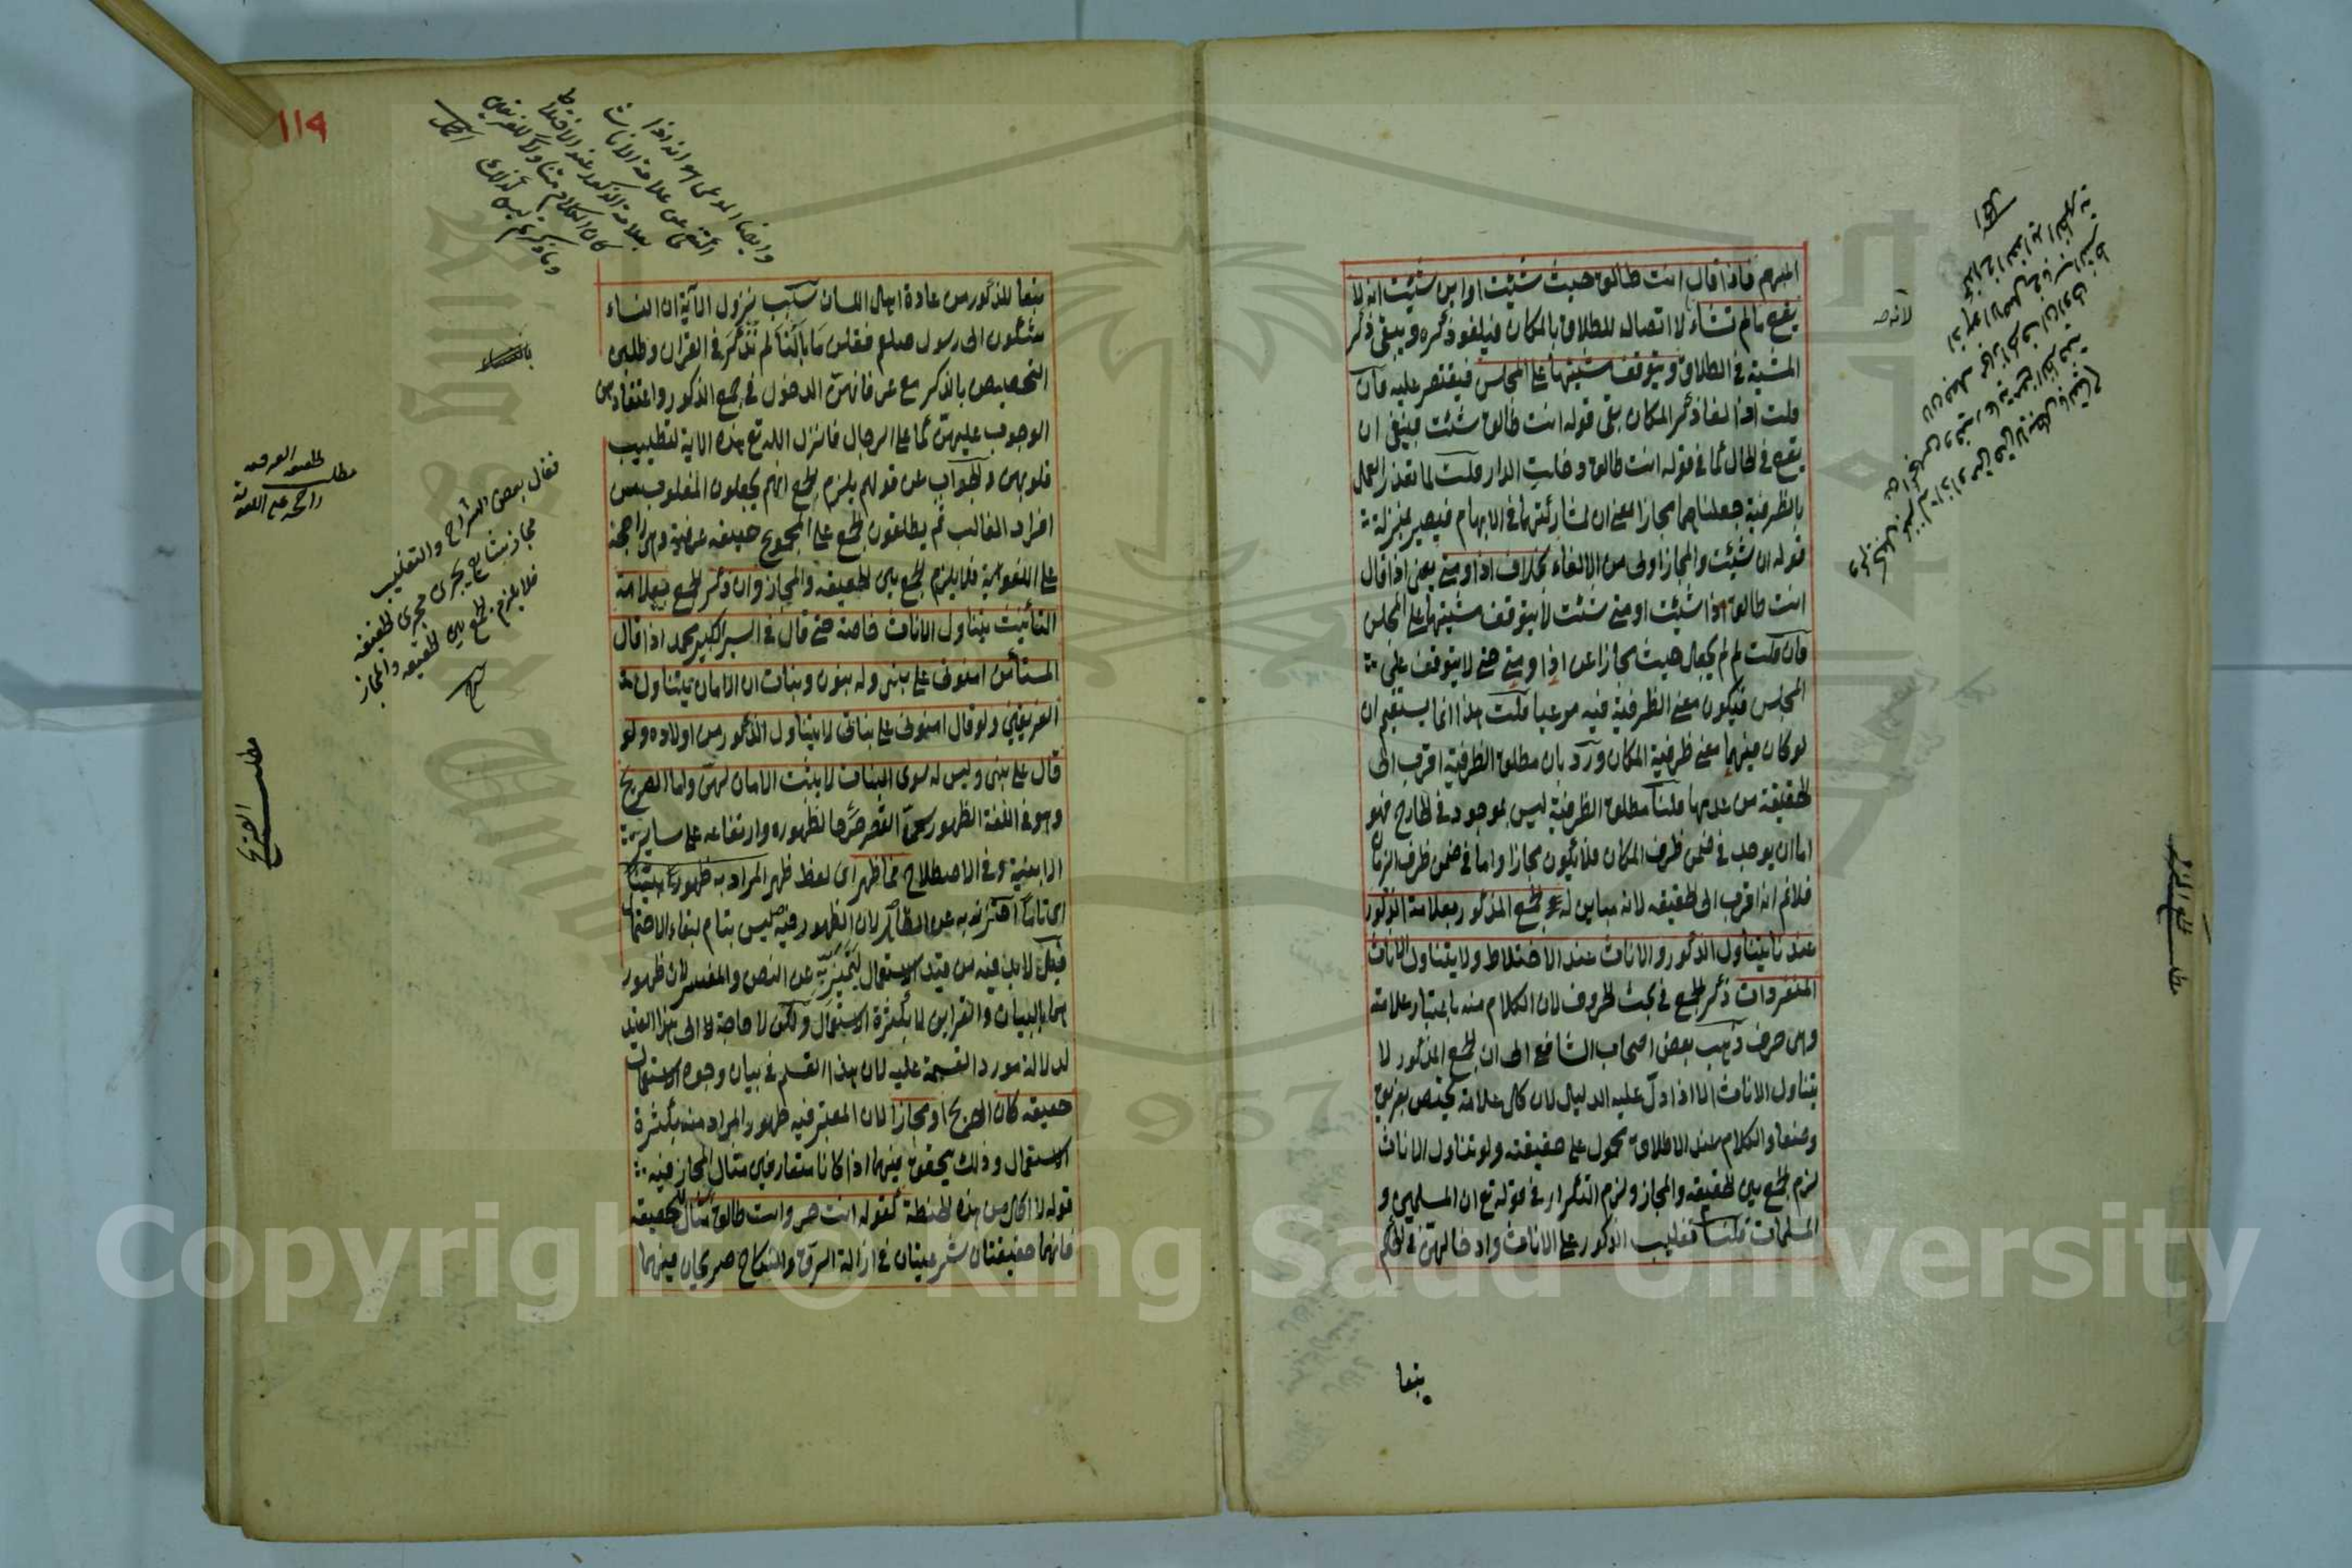 المبهم فاذا قال انت طالق حيث شئت او اين شئت انه لا
يقع ما لم تشاء لا اتصال للطلاق بالمكان فيلغو ذكره ويبقى ذكر
المشية في الطلاق ويتوقف مشيتها على المجلس فيقتصر عليه فان
قلت اذا لغا ذكر المكان بقى قوله انت طالق شئت فينبغى ان
يقع في الحال كما في قوله انت طالق دخلت الدار قلت لما تعذر العمل
بالظرفية جعلناهما مجازا بمعنى ان لمشاركتهما في الابهام فيصير بمنزلة
قوله ان شئت والمجاز اولى من الالغاء بخلاف اذا ومتى يعنى اذا قال
انت طالق اذا شئت او متى شئت لا يتوقف مشيتها على المجلس
فان قلت لم لم يجعل حيث مجازا عن اذا ومتى حتى لا يتوقف على
المجلس فيكون معنى الظرفية فيه مرعيا قلت هذا انما يستقيم ان
لو كان فيهما معنى ظرفية المكان ورد بان مطلق الظرفية اقرب الى
الحقيقة من عدمها قلنا مطلق الظرفية ليس بموجود في الخارج فهو
اما ان يوجد في ضمن ظرف المكان فلا يكون مجازا واما في ضمن ظرف الزمان
فلا نم انه اقرب الى الحقيقه لانه مباين له الجمع المذكور بعلامة الذكور
عندنا يتناول الذكور والاناث عند الاختلاط ولا يتناول الاناث
المنفردات ذكر الجمع في بحث الحروف لان الكلام فيه باعتبار علامته
وهى حرف ذهب بعض اصحاب الشافعى الى ان الجمع المذكور لا
يتناول الاناث الا اذا دل عليه الدليل لان كل علامة يختص بفريق
وضعا والكلام عند الاطلاق محمول على حقيقته ولو تناول الاناث
لزم الجمع بين الحقيقه والمجاز ولزم التكرار في قوله تع ان المسلمين و
المسلمات قلنا تغليب الذكور على الاناث وادخالهن في الحكم
تبعا
لانه صه
تبعا للذكور من عادة اهل اللسان سبب نزول الآية ان النساء
شكون الى رسول صلعم فقلن ما بالنا لم نذكر في القران وطلبن
التخصيص بالذكر مع عرفانهن الدخول في جمع الذكور واعتقادهن
الوجوب عليهن كما على الرجال فانزل الله تع هذه الاية لتطييب
قلوبهن والجواب عن قولهم يلزم الجمع انهم يجعلون المغلوب من
افراد الغالب ثم يطلقون الجمع على المجموع حقيقه عرفية وهى راجحة
على اللغوية فلا يلزم الجمع بين الحقيقه والمجاز وان ذكر الجمع بعلامة
التأنيث يتناول الاناث خاصة حتى قال في السير الكبير محمد اذا قال
المستأمن امنونى على بنى وله بنون وبنات ان الامان يتناول
الفريقين ولو قال امنونى على بناتى لا يتناول الذكور من اولاده ولو
قال على بنى وليس له سوى البنات لا يثبت الامان لهن واما الصريح
وهو في اللغة الظهور سمى القصر صرحا لظهوره وارتفاعه على ساير
الابنية وفي الاصطلاح فما ظهر اى لفظ ظهر المراد به ظهورا بينا
اى تاما احترز به عن الظاهر لان الظهور فيه ليس بتام لبقاء الاحتمال
قيل لا بد فيه من قيد الاستعمال ليتميز به عن النص والمفسر لان ظهور
هما بالبيان والقراين لا بكثرة الاستعمال ولكن لا حاجة الى هذا القيد
لدلالة مورد القسمة عليه لان هذا القسم في بيان وجوه الاستعمال
حقيقه كان الصريح او مجازا لان المعتبر فيه ظهور المراد منه بكثرة
الاستعمال وذلك يتحقق فيهما اذا كانا متعارفين مثال المجاز فيه
قوله لا اكل من هذه الحنطة كقوله انت حر وانت طالق مثال للحقيقه
فانهما حقيقتان شرعيتان في ازالة الرق والنكاح صريحان فيهما
١١٩
وايضا المدعى هو انه اذا
اكتفى عن علامة الاناث
بعلامة الذكور عند الاختلاط
كان الكلام متناولا للفريقين
وما ذكرتم ليس كذلك اكمل
مطلب
الحقيقه العرفيه
راجحه على اللغويه
فقال بعض الشراح والتغليب
مجاز شايع يجرى مجرى الحقيقه
فلا يلزم الجمع بين الحقيقه والمجاز
شرح
مطلب الصريح